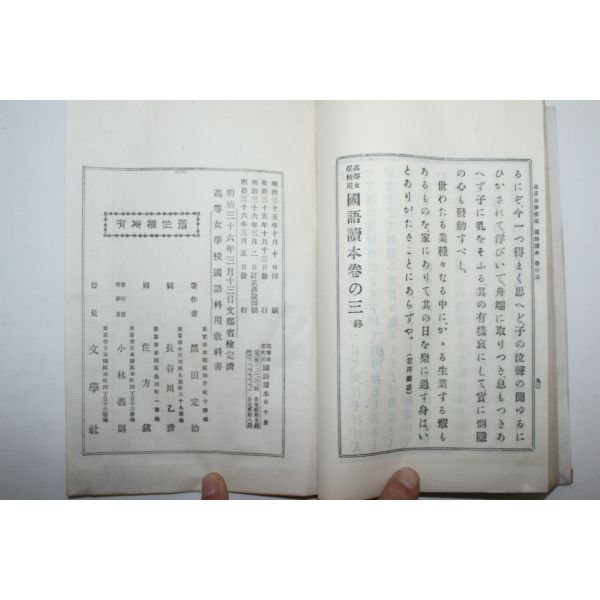 高等女學校用 國語讀本 卷の三
九〇
るにぞ今一つ得まく思へど子の泣聲の聞ゆるに
ひかされて浮びいで舟端に取りつき息もつきあ
へず子に乳をそふる其の有樣哀にして實に惻隱
の心も發動すべし。
世わたる業種々なる中にかゝる生業する輩も
あるものを家にありて其の日を樂に過す身はい
とありがたきことにあらずや。
高等女學校用 國語讀本卷の三 終
明治三十五年十月十日印刷
明治三十五年十月十三日發行
明治三十六年三月二日訂正再版印刷
明治三十六年三月五日發行
明治三十六年三月十三日文部省檢定濟
高等女學校國語科用教科書
高等女學校用 國語讀本全十卷
著作權所有
著作者
黑田定治
同
長谷川乙彥
同
佐方鎭
小林義則
發兌 文學社